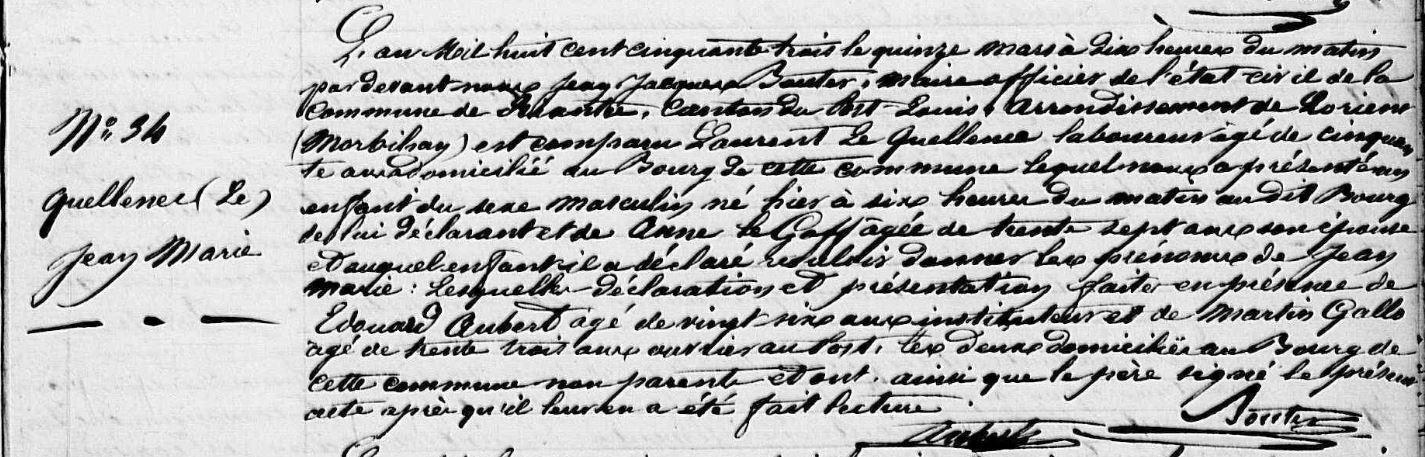 N° 34
Quellenec (Le)
Jean Marie
L'an Mil huit cent cinquante trois le quinze Mars à dix heures du matin
par devant nous Jean Jacques Bouter, Maire officier de l'état civil de la
commune de Riantec, Canton du Port-Louis, Arrondissement de Lorient
(Morbihan) est comparu Laurent Le Quellenec laboureur âgé de cinquan
te ans domicilié au Bourg de cette commune lequel nous a présenté un
enfant du sexe masculin né hier à six heures du matin au dit Bourg
de lui déclarant et de Anne le Goff âgée de trente sept ans son épouse
et auquel enfant il a déclaré vouloir donner les prénoms de Jean
Marie : Lesquelles déclaration et présentation faites en présence de
Edouard Aubert âgé de vingt six ans instituteur et de Martin Gallo
âgé de trente trois ans ouvrier au Port, les deux domiciliés au Bourg de
cette commune non parents et ont ainsi que le père signé le présent
acte après qu'il leur en a été fait lecture.
Aubert Bouter